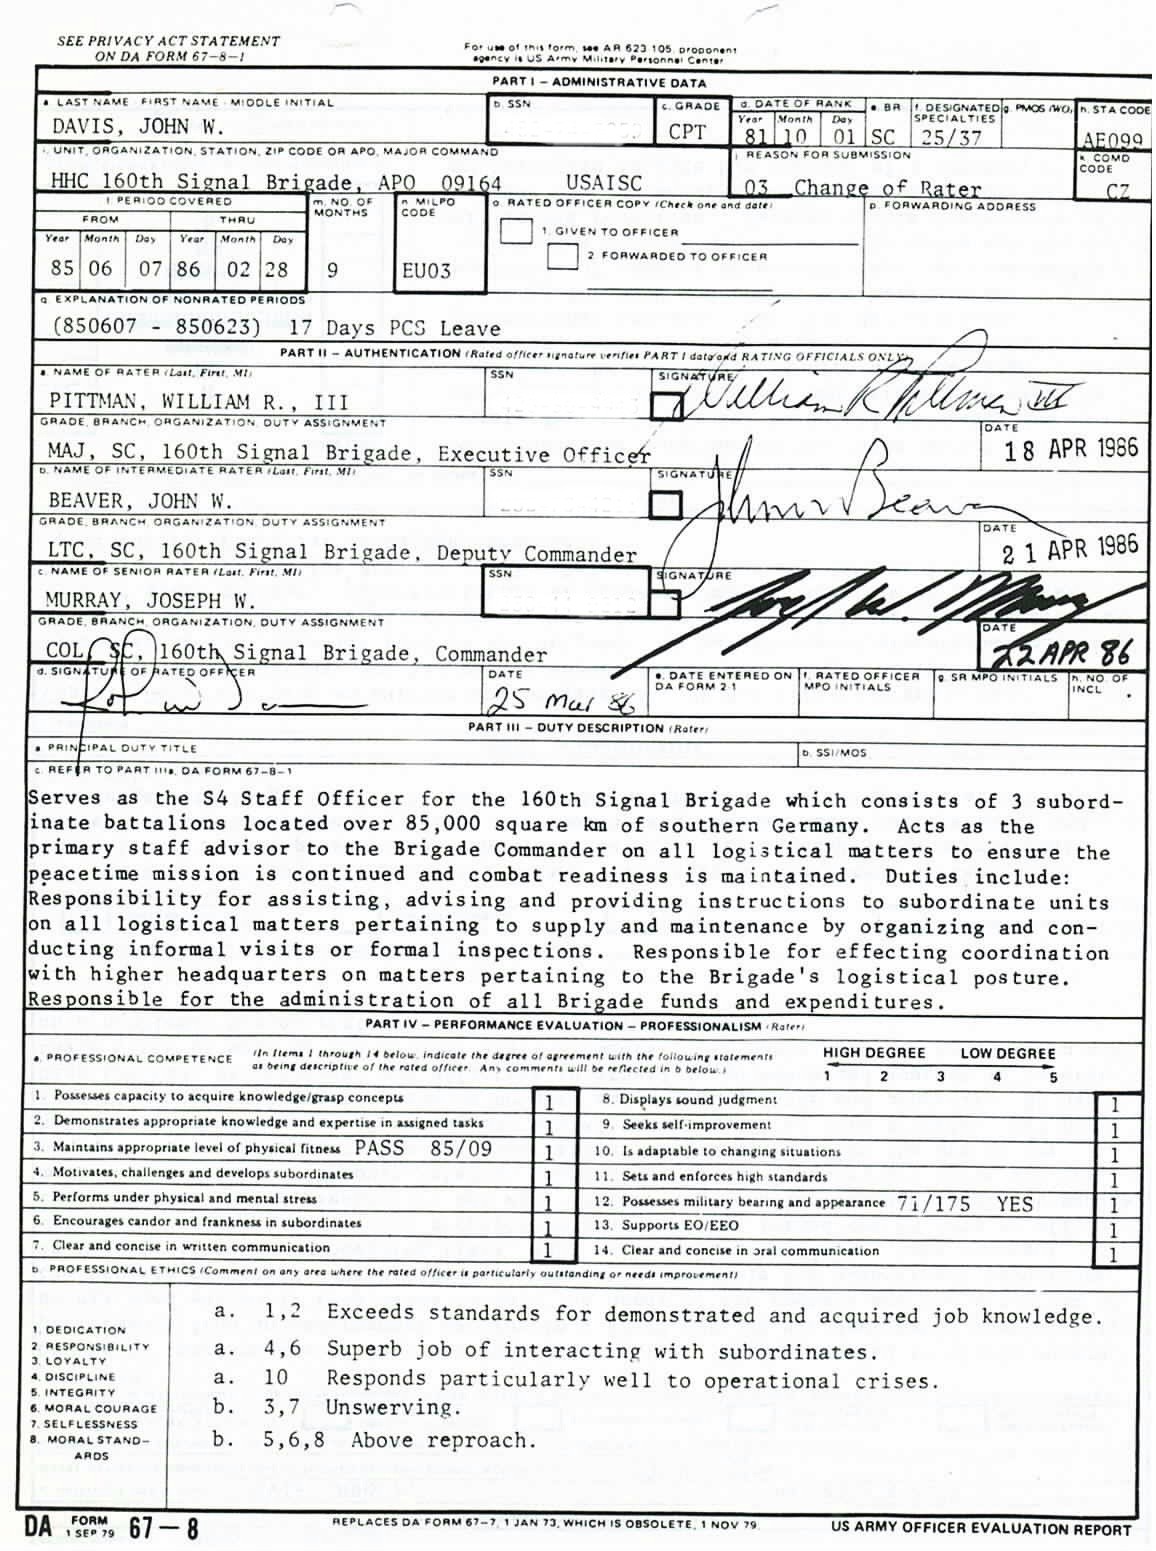 SEE PRIVACY ACT STATEMENT
ON DA FORM 67-8-1
For use of this form, see AR 623 105, proponent
agency is US Army Military Personnel Center
PART I – ADMINISTRATIVE DATA
a. LAST NAME - FIRST NAME - MIDDLE INITIAL
DAVIS, JOHN W.
b. SSN
c. GRADE
CPT
d. DATE OF RANK
Year Month Day
81 10 01
e. BR
SC
f. DESIGNATED SPECIALTIES
25/37
g. PMOS (WO)
h. STA CODE
AE099
i. UNIT, ORGANIZATION, STATION, ZIP CODE OR APO, MAJOR COMMAND
HHC 160th Signal Brigade, APO 09164 USAISC
j. REASON FOR SUBMISSION
03 Change of Rater
k. COMD CODE
CZ
l. PERIOD COVERED
FROM THRU
Year Month Day Year Month Day
85 06 07 86 02 28
m. NO. OF MONTHS
9
n. MILPO CODE
EU03
o. RATED OFFICER COPY (Check one and date)
1. GIVEN TO OFFICER
2. FORWARDED TO OFFICER
p. FORWARDING ADDRESS
q. EXPLANATION OF NONRATED PERIODS
(850607 - 850623) 17 Days PCS Leave
PART II – AUTHENTICATION (Rated officer signature verifies PART I data and RATING OFFICIALS ONLY)
a. NAME OF RATER (Last, First, MI)
PITTMAN, WILLIAM R., III
SSN
SIGNATURE
William R Pittman III
GRADE, BRANCH, ORGANIZATION, DUTY ASSIGNMENT
MAJ, SC, 160th Signal Brigade, Executive Officer
DATE
18 APR 1986
b. NAME OF INTERMEDIATE RATER (Last, First, MI)
BEAVER, JOHN W.
SSN
SIGNATURE
John W Beaver
GRADE, BRANCH, ORGANIZATION, DUTY ASSIGNMENT
LTC, SC, 160th Signal Brigade, Deputy Commander
DATE
21 APR 1986
c. NAME OF SENIOR RATER (Last, First, MI)
MURRAY, JOSEPH W.
SSN
SIGNATURE
Joseph W. Murray
GRADE, BRANCH, ORGANIZATION, DUTY ASSIGNMENT
COL, SC, 160th Signal Brigade, Commander
DATE
22 APR 86
d. SIGNATURE OF RATED OFFICER
DATE
25 Mar 86
e. DATE ENTERED ON DA FORM 2-1
f. RATED OFFICER MPO INITIALS
g. SR MPO INITIALS
h. NO. OF INCL
PART III – DUTY DESCRIPTION (Rater)
a. PRINCIPAL DUTY TITLE
b. SSI/MOS
c. REFER TO PART IIIa, DA FORM 67-8-1
Serves as the S4 Staff Officer for the 160th Signal Brigade which consists of 3 subord-
inate battalions located over 85,000 square km of southern Germany. Acts as the
primary staff advisor to the Brigade Commander on all logistical matters to ensure the
peacetime mission is continued and combat readiness is maintained. Duties include:
Responsibility for assisting, advising and providing instructions to subordinate units
on all logistical matters pertaining to supply and maintenance by organizing and con-
ducting informal visits or formal inspections. Responsible for effecting coordination
with higher headquarters on matters pertaining to the Brigade's logistical posture.
Responsible for the administration of all Brigade funds and expenditures.
PART IV – PERFORMANCE EVALUATION – PROFESSIONALISM (Rater)
a. PROFESSIONAL COMPETENCE
(In Items 1 through 14 below, indicate the degree of agreement with the following statements
as being descriptive of the rated officer. Any comments will be reflected in b below.)
HIGH DEGREE LOW DEGREE
1 2 3 4 5
1. Possesses capacity to acquire knowledge/grasp concepts 1
2. Demonstrates appropriate knowledge and expertise in assigned tasks 1
3. Maintains appropriate level of physical fitness PASS 85/09 1
4. Motivates, challenges and develops subordinates 1
5. Performs under physical and mental stress 1
6. Encourages candor and frankness in subordinates 1
7. Clear and concise in written communication 1
8. Displays sound judgment 1
9. Seeks self-improvement 1
10. Is adaptable to changing situations 1
11. Sets and enforces high standards 1
12. Possesses military bearing and appearance 71/175 YES 1
13. Supports EO/EEO 1
14. Clear and concise in oral communication 1
b. PROFESSIONAL ETHICS (Comment on any area where the rated officer is particularly outstanding or needs improvement)
1. DEDICATION
2. RESPONSIBILITY
3. LOYALTY
4. DISCIPLINE
5. INTEGRITY
6. MORAL COURAGE
7. SELFLESSNESS
8. MORAL STAND-
ARDS
a. 1,2 Exceeds standards for demonstrated and acquired job knowledge.
a. 4,6 Superb job of interacting with subordinates.
a. 10 Responds particularly well to operational crises.
b. 3,7 Unswerving.
b. 5,6,8 Above reproach.
DA FORM 1 SEP 79 67-8
REPLACES DA FORM 67-7, 1 JAN 73, WHICH IS OBSOLETE, 1 NOV 79.
US ARMY OFFICER EVALUATION REPORT